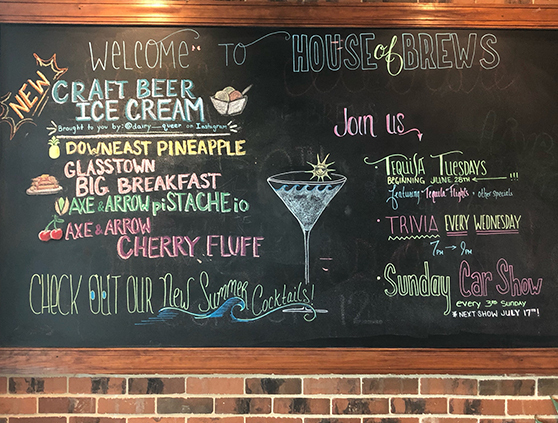 WELCOME TO HOUSE of BREWS
NEW
CRAFT BEER
ICE CREAM
Brought to you by: @dairy_queer on Instagram
DOWNEAST PINEAPPLE
GLASSTOWN
BIG BREAKFAST
AXE & ARROW piSTACHEio
AXE & ARROW
CHERRY FLUFF
CHECK OUT OUR New Summer Cocktails!
Join us
TEQUILA TUESDAYS
BEGINNING JUNE 28TH !!!
featuring Tequila Flights + other specials
• TRIVIA EVERY WEDNESDAY
7PM → 9PM
• Sunday Car Show
every 3rd SUNDAY
* NEXT SHOW JULY 17TH!